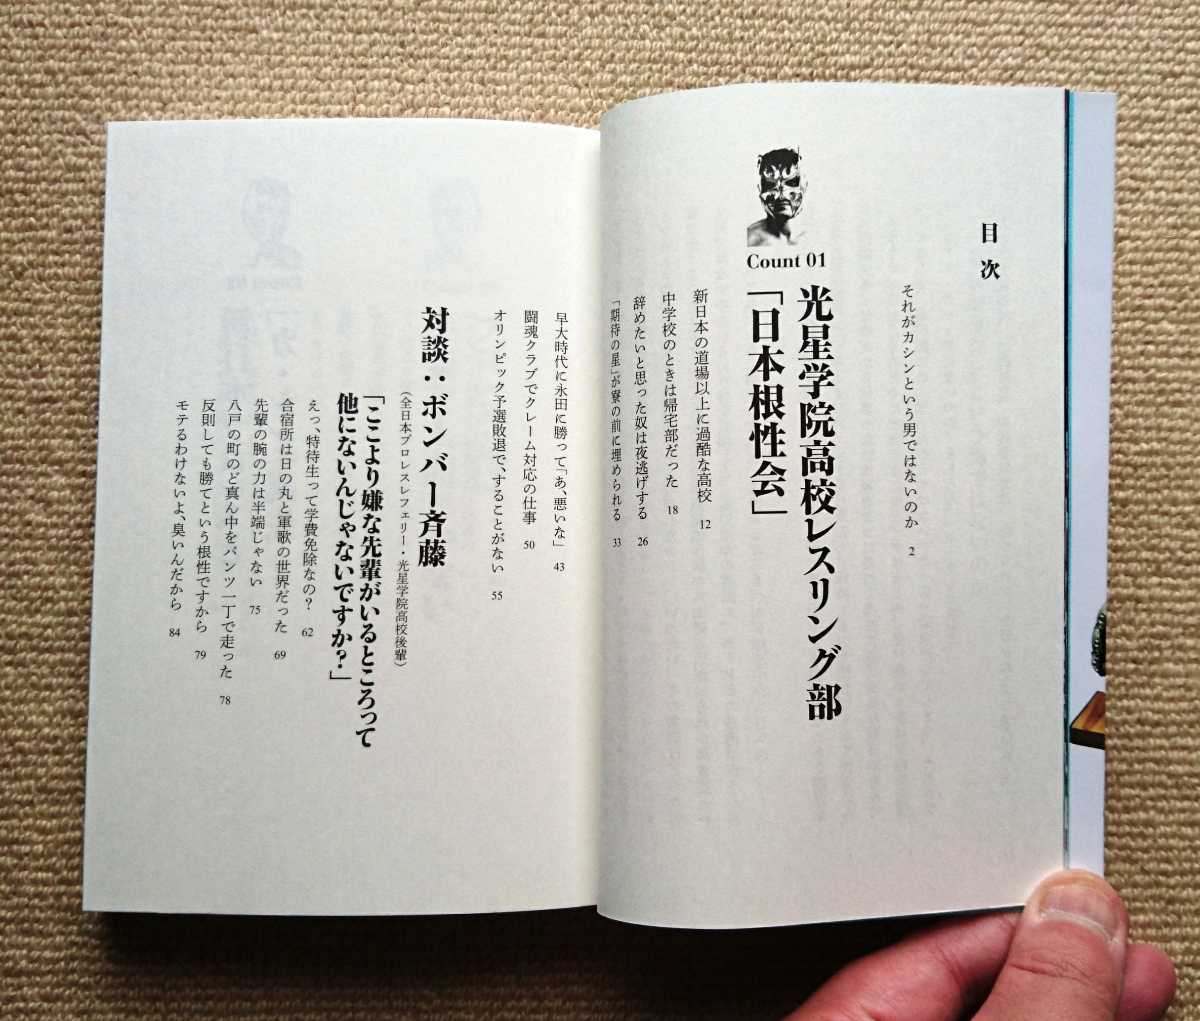 目次
それがカシンという男ではないのか 2
Count 01
光星学院高校レスリング部
「日本根性会」
新日本の道場以上に過酷な高校 12
中学校のときは帰宅部だった 18
辞めたいと思った奴は夜逃げする 26
「期待の星」が寮の前に埋められる 33
早大時代に永田に勝って「あ、悪いな」 43
闘魂クラブでクレーム対応の仕事 50
オリンピック予選敗退で、することがない 55
対談：ボンバー斉藤
（全日本プロレスレフェリー・光星学院高校後輩）
「ここより嫌な先輩がいるところって
他にないんじゃないですか？」
えっ、特待生って学費免除なの？ 62
合宿所は日の丸と軍歌の世界だった 69
先輩の腕の力は半端じゃない 75
八戸の町のど真ん中をパンツ一丁で走った 78
反則しても勝てという根性ですから 79
モテるわけないよ、臭いんだから 84